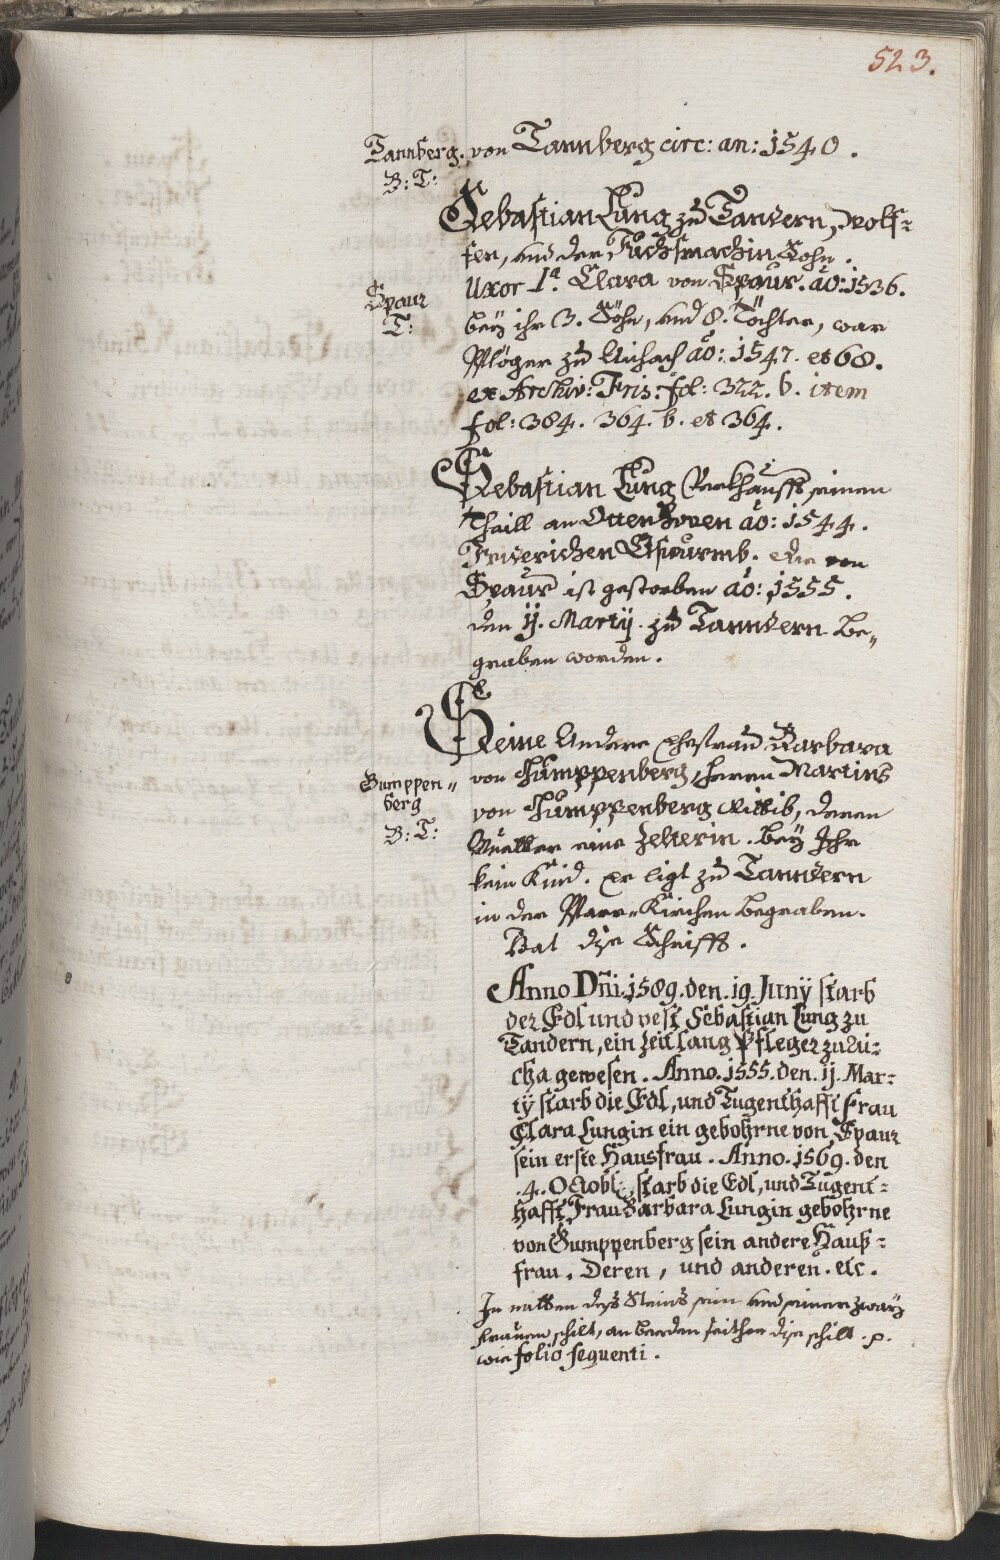 523.
Tannberg. von Tannberg circ: an: 1540.
B: T:
Sebastian Lung zu Tandern, Wolf-
fen, und der Fuchsmachin Sohn.
Uxor 1ª Clara von Spaur. aõ: 1536.
Spaur
T:
beÿ ihr 3. Söhn, und 8. Töchter, war
Pfleger zu Aichach aõ: 1547. et 68.
ex Archiv: Fris: fol: 322. b. item
fol: 384. 364. b. et 364.
Sebastian Lung Verkhaufft seinen
Thaill an Ottenhoven aõ: 1544.
Friderichen Eswurmb. die von
Spaur ist gestorben aõ: 1555.
den ij. Martij. zu Tanndern Be„
graben worden.
Seine Andere Ehefrau Barbara
von Gumppenberg, herrn Martins
Gumppen„
berg
B: T:
von Gumppenberg Wittib, deren
Muetter eine Zellerin. Beÿ Ihr
kein Kind. Er ligt zu Tanndern
in der Pfarr-Kirchen begraben.
Hat dise Schrifft.
Anno Dñi. 1589. den. 19. Junÿ starb
der Edl und vest Sebastian Lung zu
Tandern, ein Zeit lang Pfleger zu Ai-
cha gewesen. Anno. 1555. den. ij. Mar-
tÿ starb die Edl, und Tugenthafft Frau
Clara Lungin ein gebohrne von Spaur
sein erste Hausfrau. Anno. 1569. den
.4. Octobr: starb die Edl, und Tugent-
hafft Frau Barbara Lungin gebohrne
von Gumppenberg sein andere Hauß-
frau. Deren, und anderen. etc.
In mitten deß Stains sein und seiner zwaÿ
frauen schilt, an beeden seithen dise schilt. p.
wie folio sequenti.